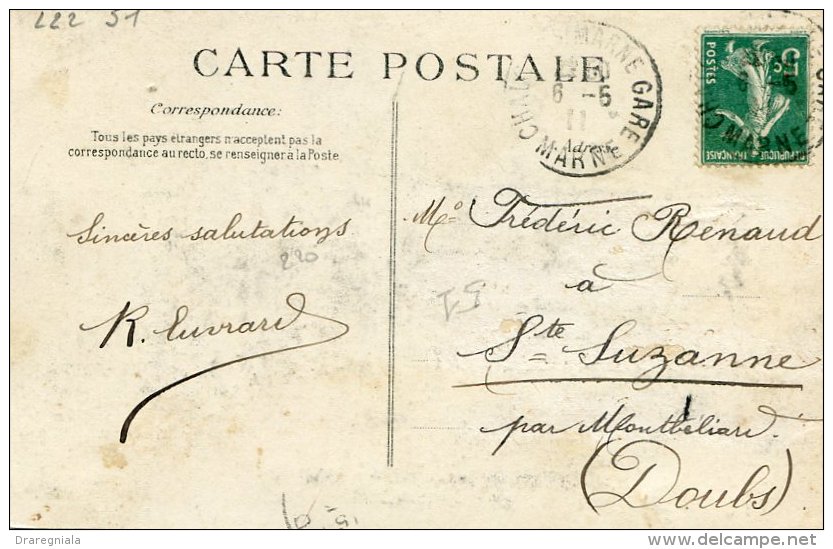 222 51
CARTE POSTALE
Correspondance:
Tous les pays étrangers n'acceptent pas la
correspondance au recto, se renseigner à la Poste
MARNE GARE
6 - 5
11
MARNE
Adresse
POSTES
5c
REPUBLIQUE FRANÇAISE
Sincères salutations
220
R. Cuvrard
Mr Frédéric Renaud
à
Ste Suzanne
par Montbéliard.
(Doubs)
51
Draregniala
www.delcampe.net